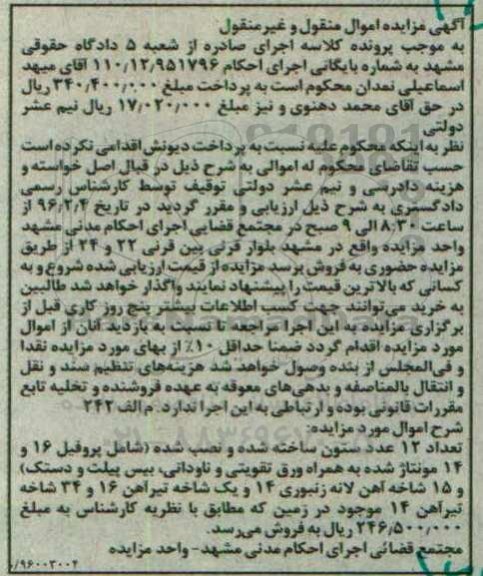 آگهی مزایده اموال منقول و غیرمنقول
به موجب پرونده کلاسه اجرای صادره از شعبه ۵ دادگاه حقوقی
مشهد به شماره بایگانی اجرای احکام ۱۱۰,۱۲,۹۵۱۷۹۶ آقای میهد
اسماعیلی نمدان محکوم است به پرداخت مبلغ ۳۴۰,۴۰۰,۰۰۰ ریال
در حق آقای محمد دهنوی و نیز مبلغ ۱۷,۰۲۰,۰۰۰ ریال نیم عشر
دولتی
نظر به اینکه محکوم علیه نسبت به پرداخت دیونش اقدامی نکرده است
حسب تقاضای محکوم له اموالی به شرح ذیل در قبال اصل خواسته و
هزینه دادرسی و نیم عشر دولتی توقیف توسط کارشناس رسمی
دادگستری به شرح ذیل ارزیابی و مقرر گردید در تاریخ ۹۶,۲,۴ از
ساعت ۸:۳۰ الی ۹ صبح در مجتمع قضایی اجرای احکام مدنی مشهد
واحد مزایده واقع در مشهد بلوار قرنی بین قرنی ۲۲ و ۲۴ از طریق
مزایده حضوری به فروش برسد مزایده از قیمت ارزیابی شده شروع و به
کسانی که بالاترین قیمت را پیشنهاد نمایند واگذار خواهد شد طالبین
به خرید می‌توانند جهت کسب اطلاعات بیشتر پنج روز کاری قبل از
برگزاری مزایده به این اجرا مراجعه تا نسبت به بازدید آنان از اموال
مورد مزایده اقدام گردد ضمنا حداقل ۱۰٪ از بهای مورد مزایده نقدا
و فی‌المجلس از بنده وصول خواهد شد هزینه‌های تنظیم سند و نقل
و انتقال بالمناصفه و بدهی‌های معوقه به عهده فروشنده و تخلیه تابع
مقررات قانونی بوده و ارتباطی به این اجرا ندارد. م الف ۲۴۲
شرح اموال مورد مزایده:
تعداد ۱۲ عدد ستون ساخته شده و نصب شده (شامل پروفیل ۱۶ و
۱۴ مونتاژ شده به همراه ورق تقویتی و ناودانی، بیس پیلت و دستک)
و ۱۵ شاخه آهن لانه زنبوری ۱۴ و یک شاخه تیرآهن ۱۶ و ۳۴ شاخه
تیرآهن ۱۴ موجود در زمین که مطابق با نظریه کارشناس به مبلغ
۲۴۶,۵۰۰,۰۰۰ ریال به فروش می‌رسد.
مجتمع قضائی اجرای احکام مدنی مشهد - واحد مزایده
/۹۶۰۰۳۰۰۴